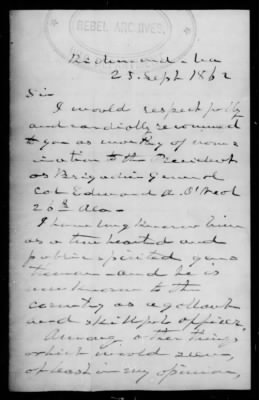 REBEL ARCHIVES.
Richmond - Va
25 Sept 1862
Sir
I would respectfully
and cordially recommend
to you as worthy of nom-
ination to the President
as Brigadier General
Col Edward A. O'Neal
26th Ala -
I have long known him
as a true hearted and
public spirited gen-
tleman - and he is
known to the
country as a gallant
and skillful officer.
Among other things
which would seem,
at least in my opinion,